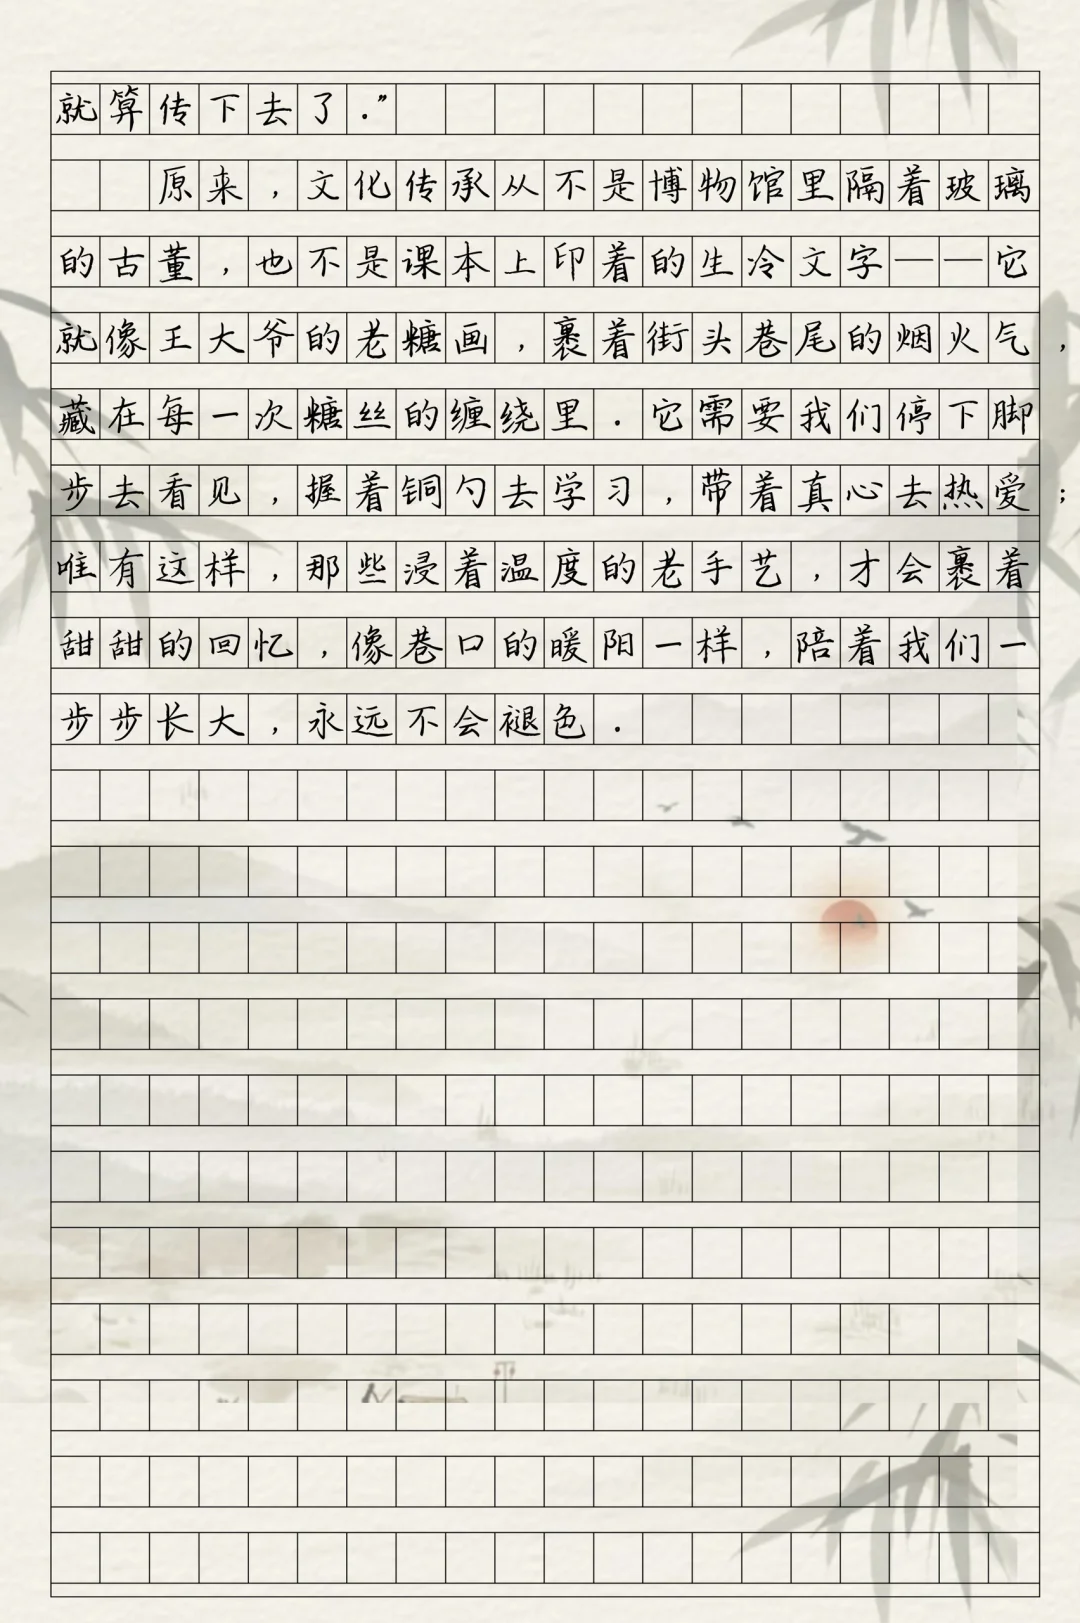 就算传下去了.”
原来，文化传承从不是博物馆里隔着玻璃
的古董，也不是课本上印着的生冷文字——它
就像王大爷的老糖画，裹着街头巷尾的烟火气，
藏在每一次糖丝的缠绕里.它需要我们停下脚
步去看见，握着铜勺去学习，带着真心去热爱；
唯有这样，那些浸着温度的老手艺，才会裹着
甜甜的回忆，像巷口的暖阳一样，陪着我们一
步步长大，永远不会褪色.